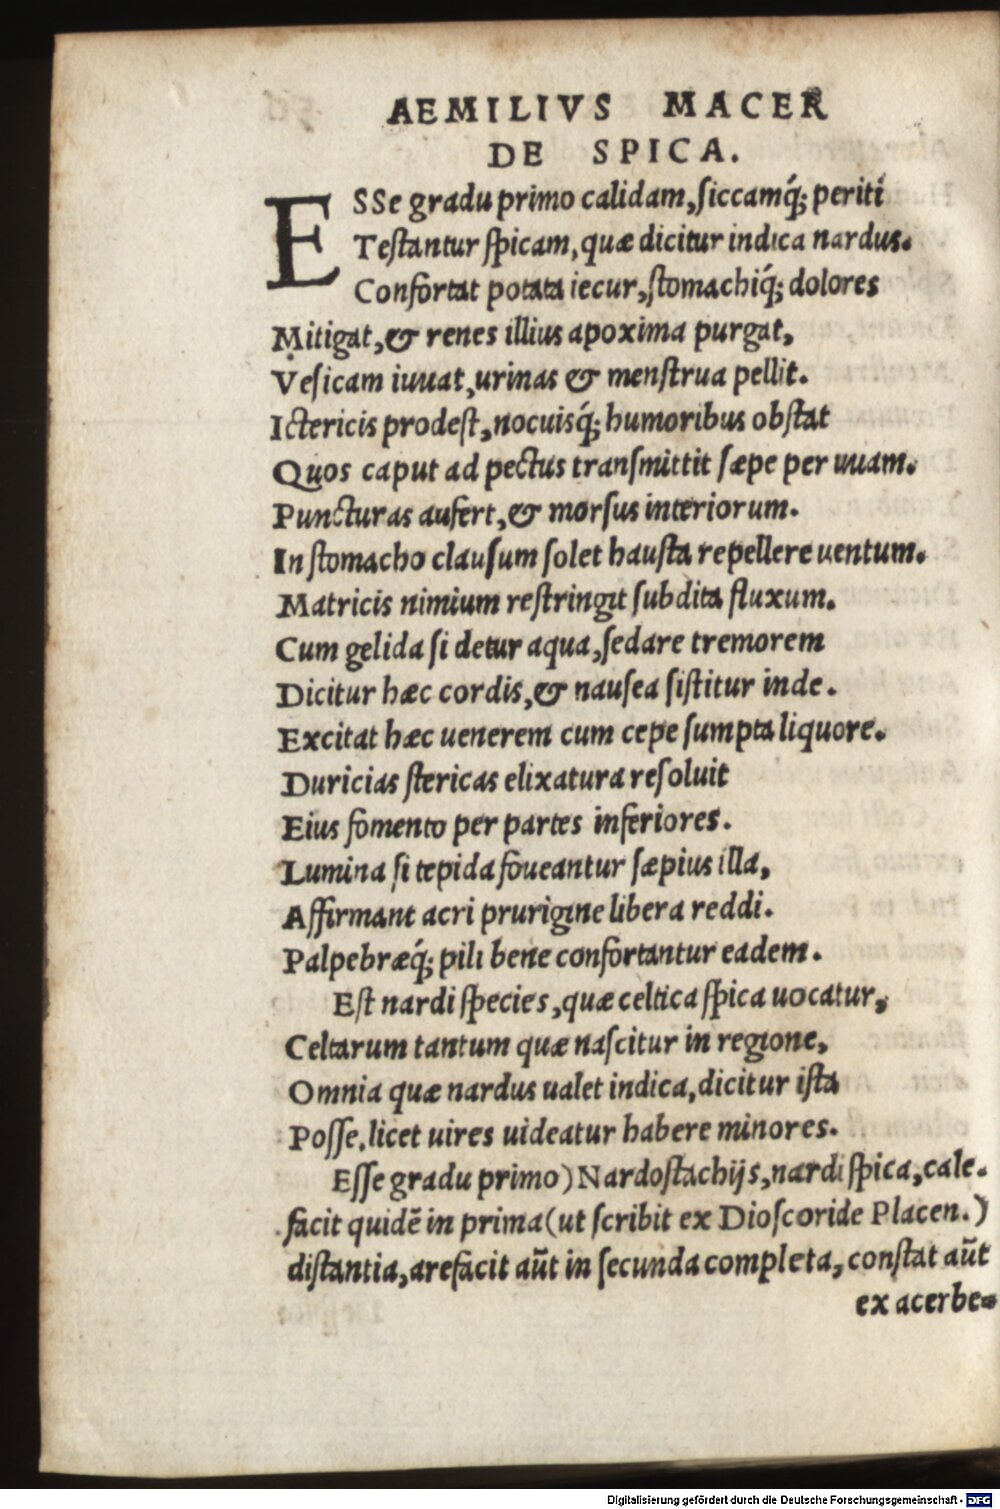 AEMILIVS MACER
DE SPICA.
ESSe gradu primo calidam, ſiccamq́; periti
Teſtantur ſpicam, quæ dicitur indica nardus.
Confortat potata iecur, ſtomachiq́; dolores
Mitigat, & renes illius apoxima purgat,
Veſicam iuuat, urinas & menſtrua pellit.
Ictericis prodeſt, nocuisq́; humoribus obſtat
Quos caput ad pectus tranſmittit ſæpe per uuam.
Puncturas aufert, & morſus interiorum.
In ſtomacho clauſum ſolet hauſta repellere uentum.
Matricis nimium reſtringit ſubdita fluxum.
Cum gelida ſi detur aqua, ſedare tremorem
Dicitur hæc cordis, & nauſea ſiſtitur inde.
Excitat hæc uenerem cum cepe ſumpta liquore.
Duricias ſtericas elixatura reſoluit
Eius fomento per partes inferiores.
Lumina ſi tepida foueantur ſæpius illa,
Affirmant acri prurigine libera reddi.
Palpebræq́; pili bene confortantur eadem.
Eſt nardi ſpecies, quæ celtica ſpica uocatur,
Celtarum tantum quæ naſcitur in regione,
Omnia quæ nardus ualet indica, dicitur iſta
Poſſe, licet uires uideatur habere minores.
Eſſe gradu primo) Nardoſtachijs, nardi ſpica, cale-
facit quidẽ in prima (ut ſcribit ex Dioſcoride Placen.)
diſtantia, arefacit aũt in ſecunda completa, conſtat aũt
ex acerbe-
Digitalisierung gefördert durch die Deutsche Forschungsgemeinschaft - DFG